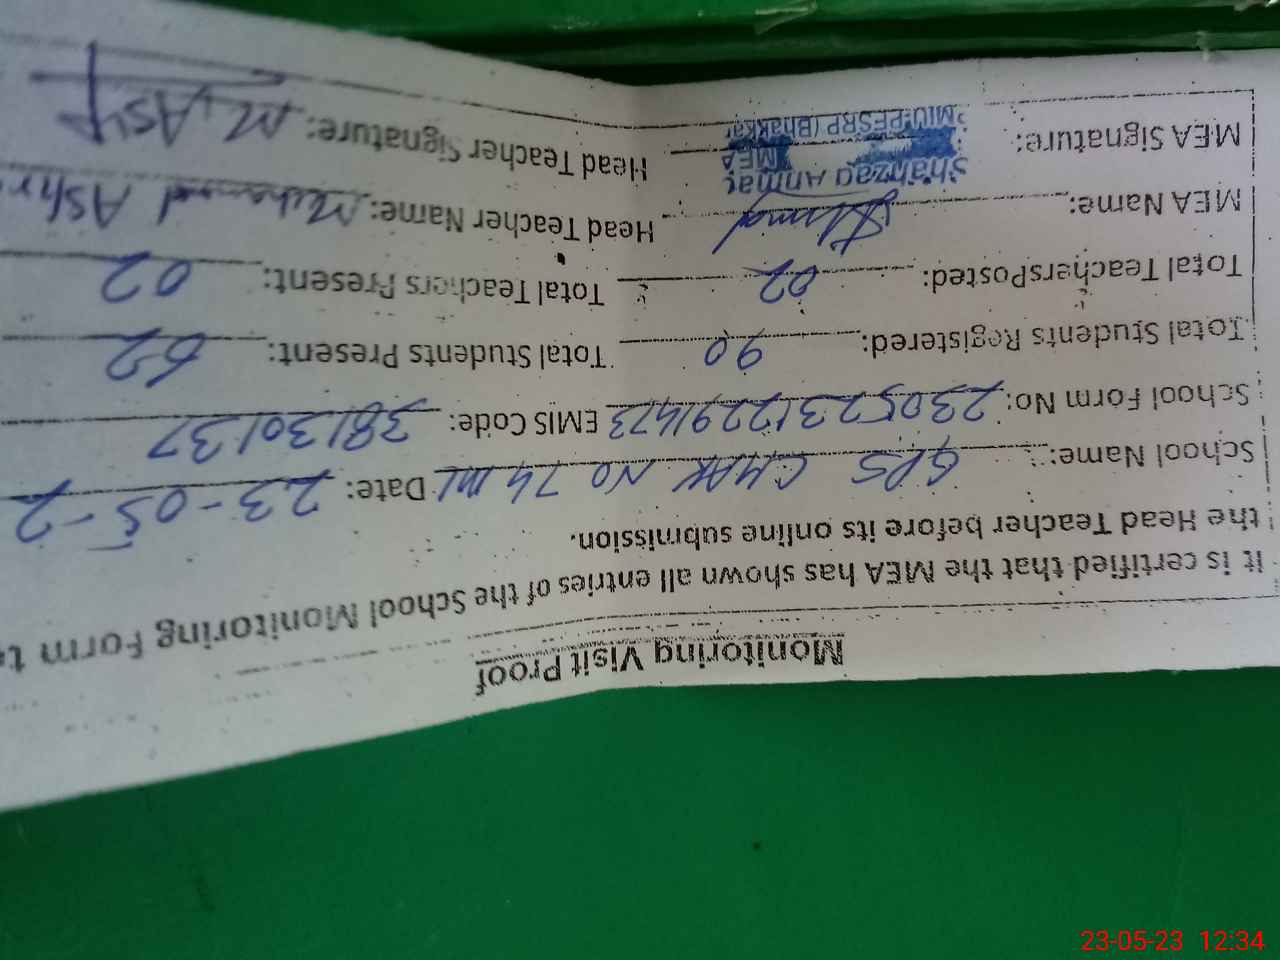 Monitoring Visit Proof
it is certified that the MEA has shown all entries of the School Monitoring Form t
the Head Teacher before its online submission.
School Name: GPS CHAK NO 74 ML Date: 23-05-2
School Form No: 230523122291473 EMIS Code: 38130137
Total Students Registered: 90 Total Students Present: 62
Total Teachers Posted: 02 Total Teachers Present: 02
MEA Name: Head Teacher Name: Muhammad Ashr
MEA Signature: Head Teacher Signature: M. ASrf
Shahzad Ahmad
MEA
MIU-PESRP (Bhakkar
23-05-23 12:34